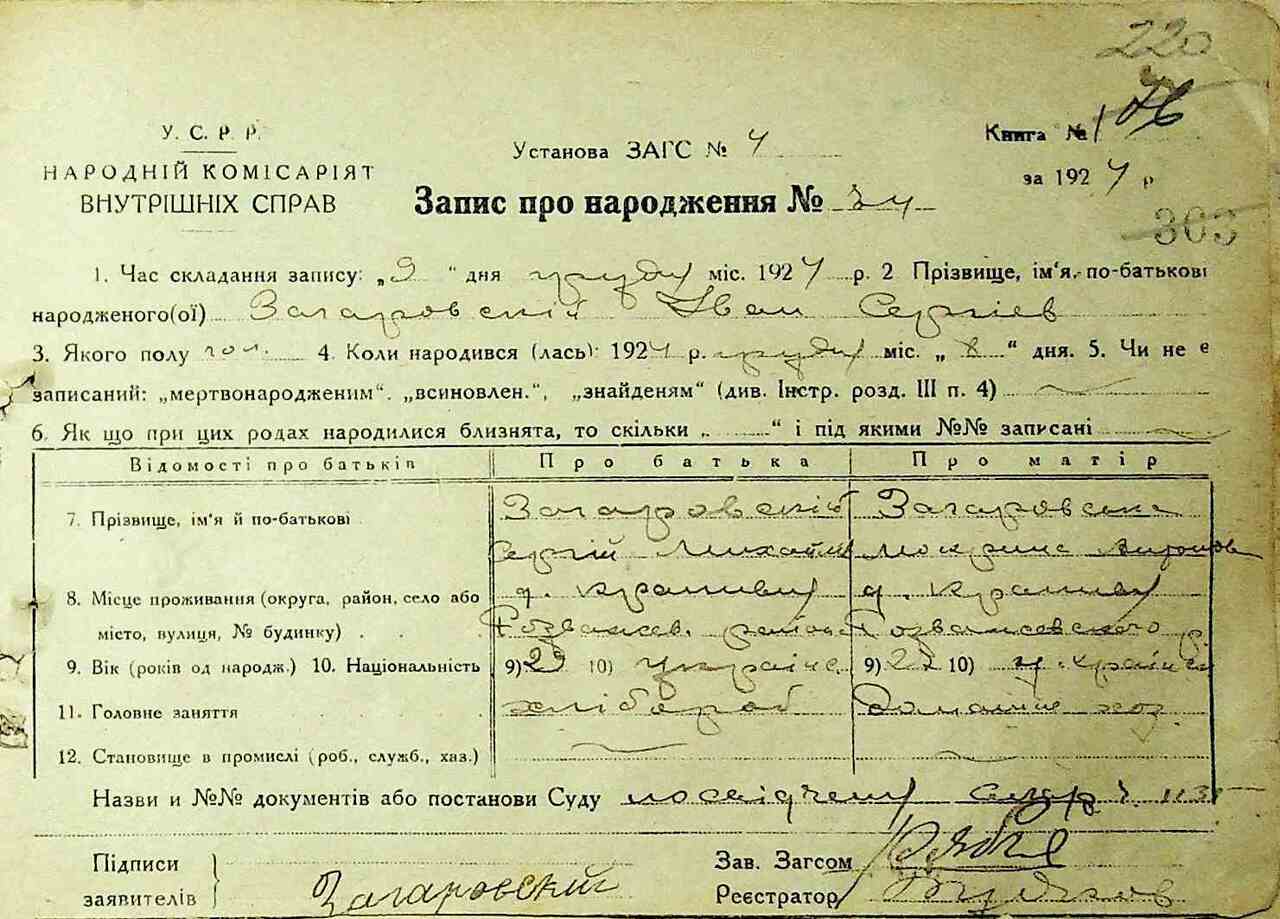 220
У. С. Р. Р.
НАРОДНІЙ КОМІСАРІЯТ
ВНУТРІШНІХ СПРАВ
Установа ЗАГС № 4
Книга № 176
за 1924 р
Запис про народження № 34
303
1. Час складання запису: „9 " дня грудня міс. 1924 р. 2 Прізвище, ім'я, по-батькові
народженого(ої) Загаровській Иван Сергіев
3. Якого полу чол. 4. Коли народився (лась): 1924 р. грудня міс. „ 8 “ дня. 5. Чи не є
записаний: „мертвонародженим“. „всиновлен.“, „знайденям“ (див. Інстр. розд. III п. 4)
6. Як що при цих родах народилися близнята, то скільки „ “ і під якими №№ записані
Відомості про батьків Про батька Про матір
7. Прізвище, ім'я й по-батькові Загаровській Загаровська
Сергій Михайл Мокрина
8. Місце проживання (округа, район, село або
місто, вулиця, № будинку)
Розважев. району Розважевского р
9. Вік (років од народж.) 10. Національність 9) 29 10) україне 9) 27 10) україн
11. Головне заняття хлібороб домашне хоз
12. Становище в промислі (роб., служб., хаз.)
Назви и №№ документів або постанови Суду посвідчення
Підписи
заявителів
Загаровский
Зав. Загсом
Реєстратор